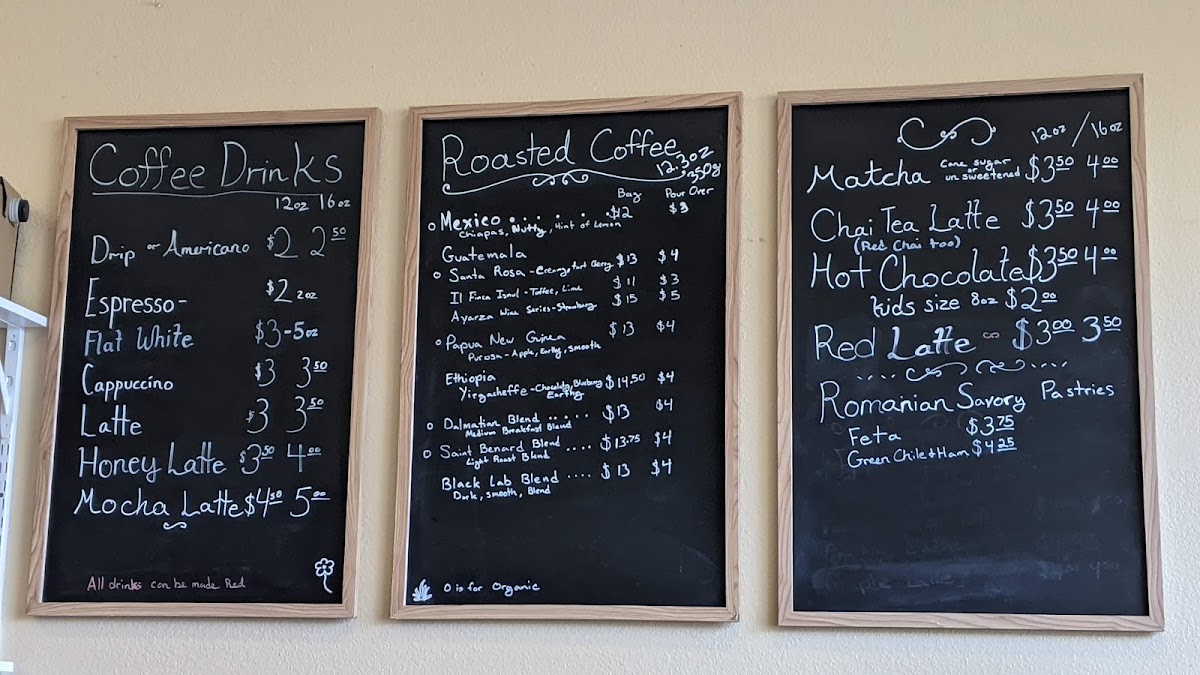 Coffee Drinks
12oz 16oz
Drip or Americano $2 2.50
Espresso- $2 2oz
Flat White $3-5oz
Cappuccino $3 3.50
Latte $3 3.50
Honey Latte $3.50 4.00
Mocha Latte $4.50 5.00
All drinks can be made Red
Roasted Coffee
12.3oz
350g
Bag Pour Over
o Mexico . . . . . . $12 $3
Chiapas, Nutty, Hint of Lemon
Guatemala
o Santa Rosa - Creamy, tart Cherry $13 $4
Il Finca Isnul - Toffee, Lime $11 $3
Ayarza Wine Series - Strawburry $15 $5
o Papua New Guinea $13 $4
Purosa - Apple, Earthy, Smooth
Ethiopia
Yirgacheffe - Chocolaty, Blueburry $14.50 $4
Earthy
o Dalmatian Blend ..... $13 $4
Medium Breakfast Blend
o Saint Benard Blend .... $13.75 $4
Light Roast Blend
Black Lab Blend .... $13 $4
Dark, smooth, Blend
O is for Organic
12oz / 16oz
Matcha Cane sugar or unsweetened $3.50 4.00
Chai Tea Latte $3.50 4.00
(Red Chai too)
Hot Chocolate $3.50 4.00
kids size 8oz $2.00
Red Latte $3.00 3.50
Romanian Savory Pastries
Feta $3.75
Green Chile + Ham $4.25